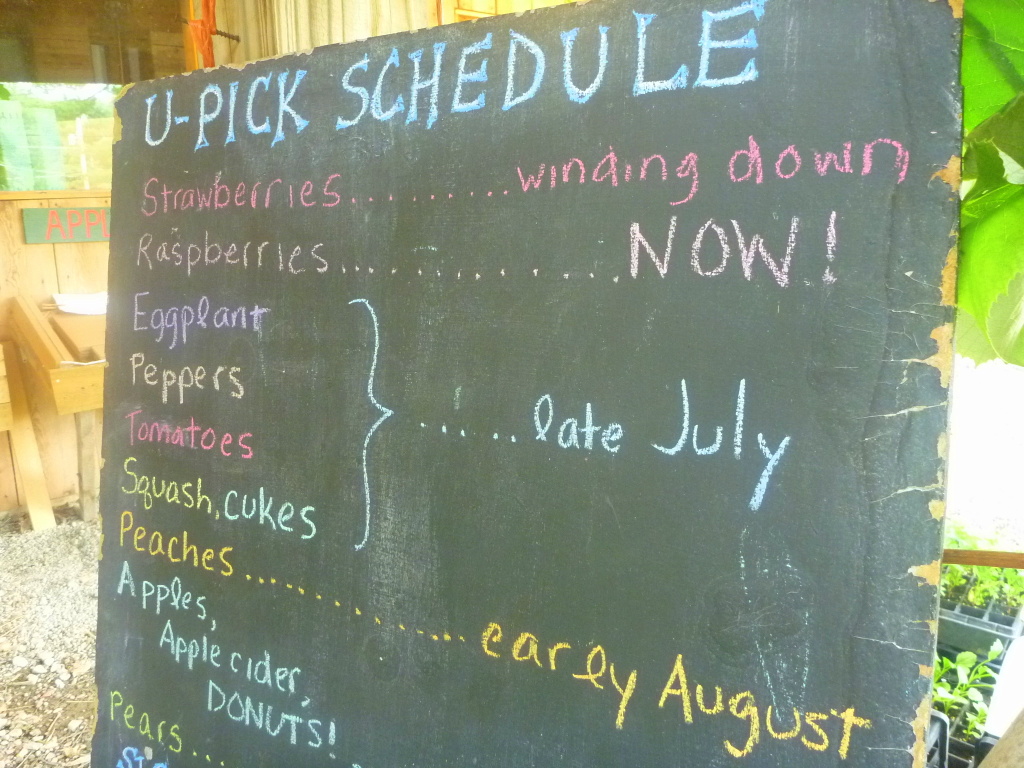 U-PICK SCHEDULE
Strawberries..........winding down
Raspberries............NOW!
APPL
Eggplant
Peppers
Tomatoes
......late July
Squash, cukes
Peaches..............early August
Apples,
Apple cider,
DONUTS!
Pears...